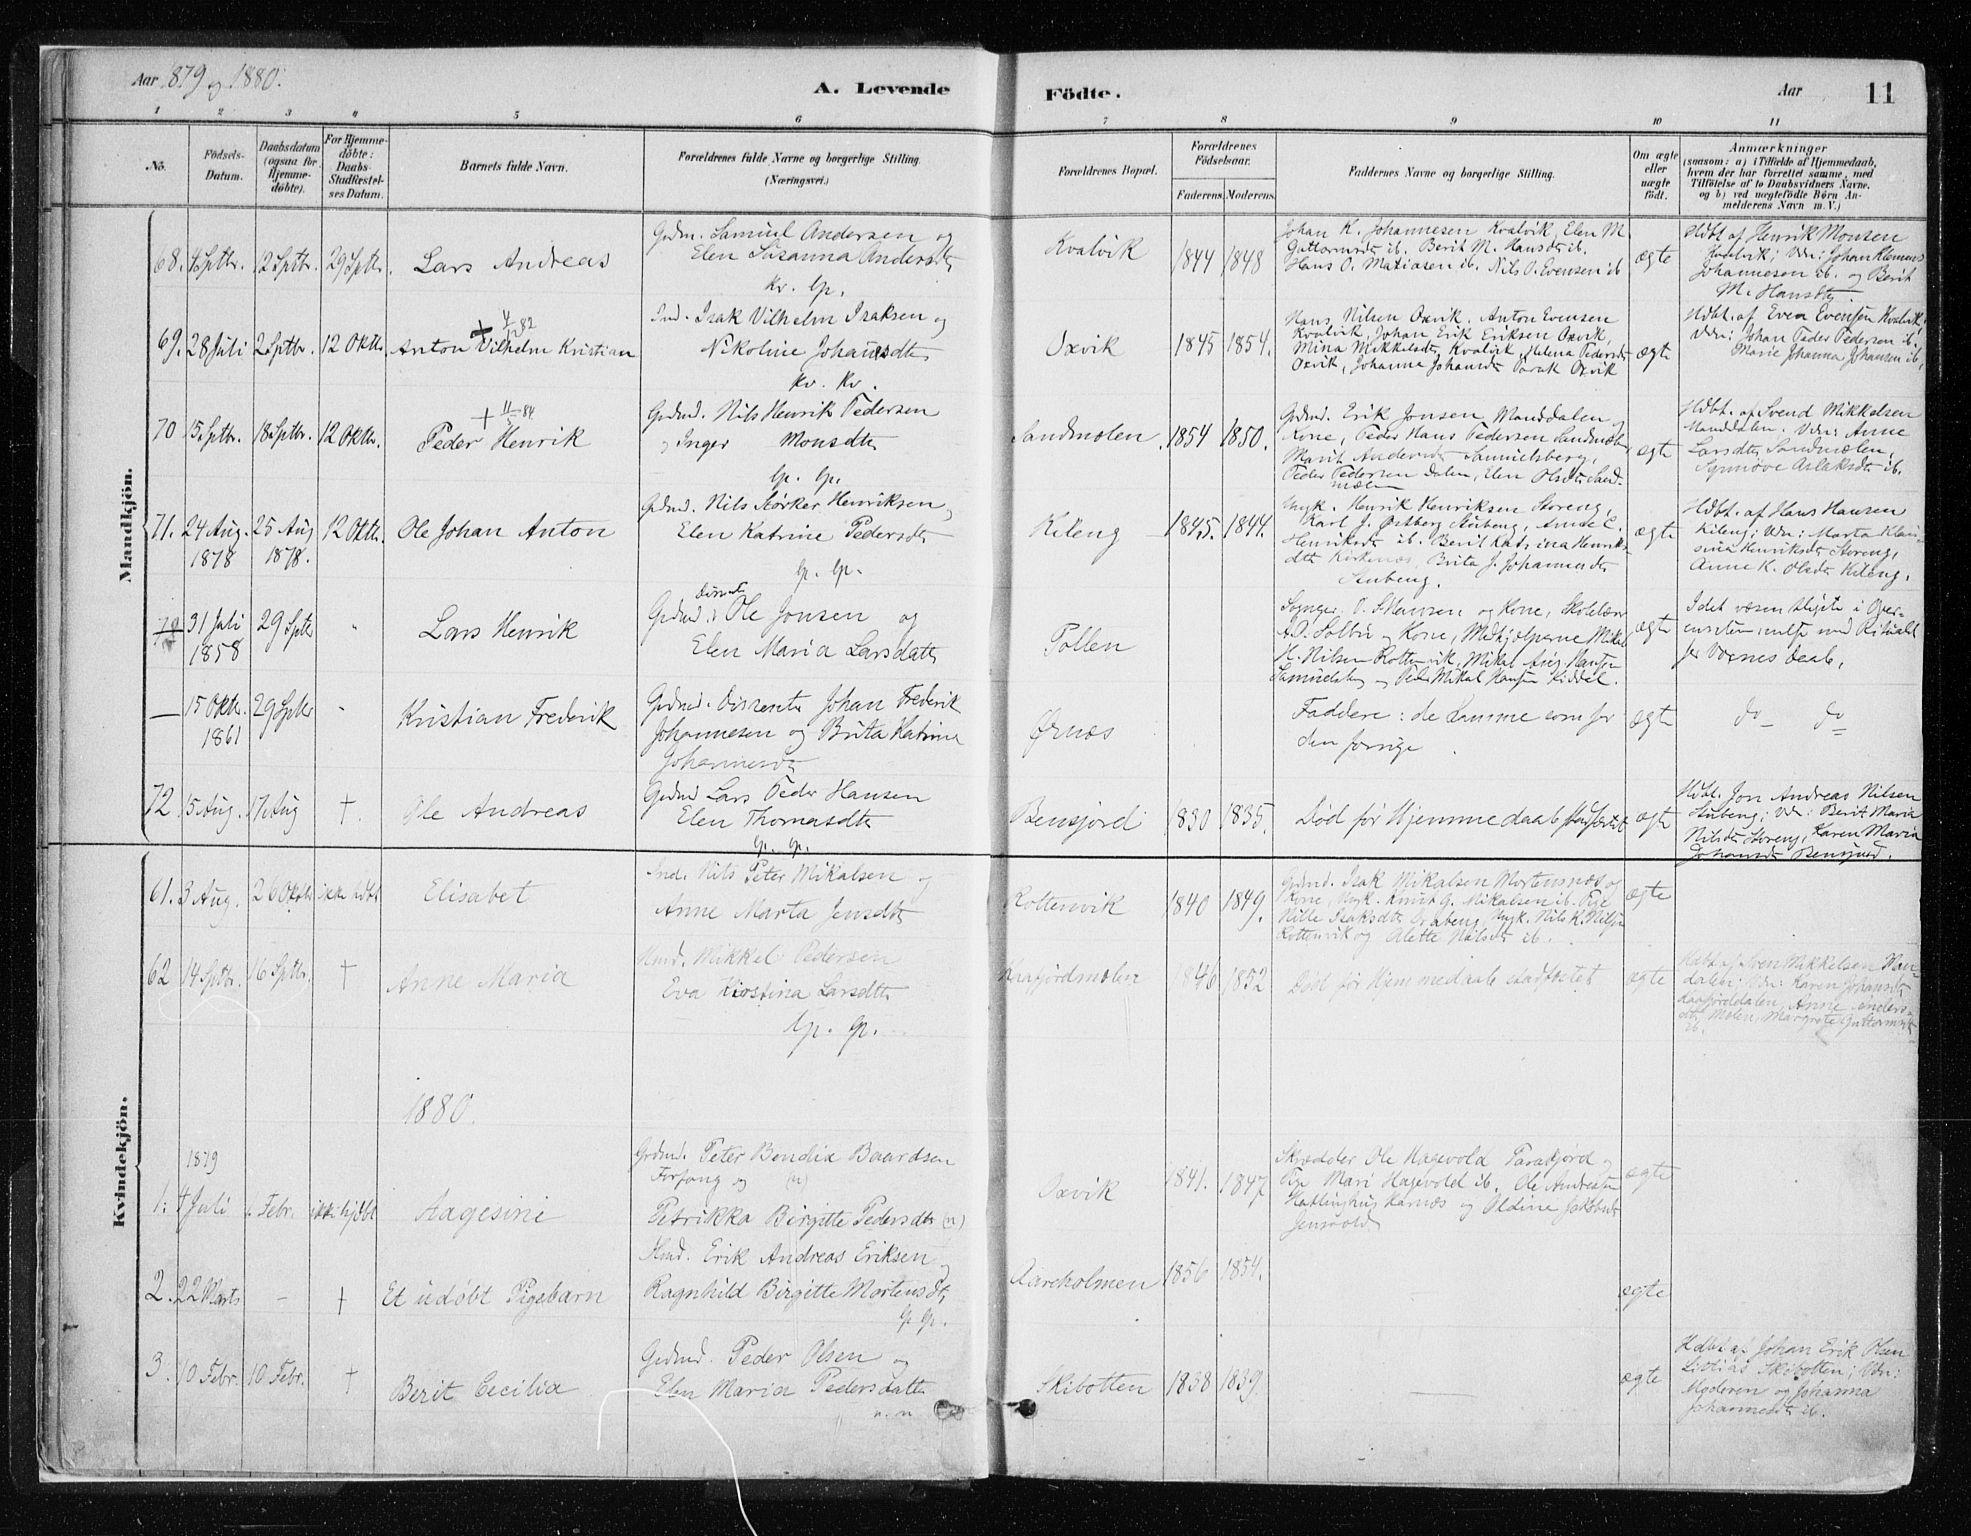 Aar 1879 og 1880.
A. Levende
Födte.
Aar
11
1 2 3 4 5 6 7 8 9 10 11
No. Födsels-Datum. Daabsdatum (ogsaa for Hjemmedöbte). For Hjemmedöbte: Daabs-Stadfæstelses Datum. Barnets fulde Navn. Forældrenes fulde Navne og borgerlige Stilling. (Næringsvei.) Forældrenes Bopæl. Forældrenes Födselsaar. Faderens. Moderens. Faddernes Navne og borgerlige Stilling. Om ægte eller uægte födt. Anmærkninger (saasom: a) i Tilfælde af Hjemmedaab, hvem der har forrettet samme, med Tilföielse af to Daabsvidners Navne, og b) ved uægtefödte Börn Anmelderens Navn m. V.)
Mandkjön.
68. 4 Sptbr. 12 Sptbr. 29 Sptbr. Lars Andreas
Gdmd. Samuel Andersen og
Elen Susanna Andersdtr
Kv. Lp.
Kvalvik 1844 1848
Johan K. Johannesen Kvalvik, Elen M.
Guttormsdtr ib. Berit M. Hansdtr ib.
Hans O. Matiasen ib. Nils O. Evensen ib
ægte
Hdbt. af Henrik Monsen
Vdn: Johan Klemens
Johannesen ib. og Berit
M. Hansdtr.
69. 28 Juli 2 Sptbr. 12 Oktbr. + 4/12 82
Anton Vilhelm Kristian
Ind. Isak Vilhelm Isaksen og
Nikoline Johansdtr
Kv. Kv.
Oxvik 1845 1854.
Hans Nilsen Oxvik, Anton Evensen
Kvalvik, Johan Erik Eriksen Oxvik,
Mina Mikkelsdtr Kvalvik, Helena Pedersdtr
Oxvik, Johanna Johansdtr Oxvik
ægte
Hdbt. af Even Evensen Kvalvik,
Vdn: Johan Peder Pedersen ib.
Marie Johanna Johansen ib,
70 15 Sptbr. 18 Sptbr. 12 Oktbr. + 84
Peder Henrik
Gdmd. Nils Henrik Pedersen
og Inger Monsdtr
Lp. Lp.
Sandmolen. 1854 1850.
Gdmd. Erik Jonsen Manddalen og
Kone, Peder Hans Pedersen Sandmælen
Marit Andersdtr Samuelsberg,
Peder Pedersen Dalen, Elen Olsdtr Sand-
mælen
ægte
Hdbt. af Svend Mikkelsen
Manddalen. Vdn: Anne
Larsdtr, Sandmælen,
Synnøve Aslaksdtr ib.
71. 24 Aug. 1878 25 Aug 1878. 12 Oktbr. Ole Johan Anton
Gdmd. Nils Størker Henriksen,
Elen Katrine Pedersdtr
Lp. Lp.
Kileng 1845. 1844.
Ungk. Henrik Henriksen Storeng,
Karl J. Østberg Stubeng, Anne C.
Henriksdtr ib. Berit Katrina Henriks-
dtr Kirkenæs, Brita J. Johannesdtr
Stubeng.
ægte
Hdbt. af Hans Hansen
Kileng; Vdn: Marta Klau-
sina Henriksdtr Storeng,
Anne K. Olsdtr Kileng.
31 Juli 1858 29 Sptbr " Lars Henrik
Dissent.
Gdmd: Ole Jonsen og
Elen Maria Larsdatter
Pollen
Sognepr. O. S. Hansen og Kone, Skolelærer
A. O. Solbu og Kone, Medhjælperne Mikal
H. Nilsen Rottenvik, Mikal Aug. Hansen
Samuelsbg og Peder Mikal Hansen Kiddel.
ægte
I det væsentligste i Over-
ensstemmelse med Ritualet
for Voxnes Daab,
— 15 Oktbr. 1861 29 Sptbr " Kristian Frederik
Gdmd. Dissenter Johan Frederik
Johannesen og Brita Katrine
Johannesdtr
Ørnæs
Faddere: de Samme som for
den forrige.
ægte
do do
72 15 Aug. 17 Aug †. Ole Andreas
Gdmd Lars Peder Hansen
Elen Thomasdtr
Lp. Lp.
Bensjord 1830 1835.
Død før Hjemmedaab stadfæstet
ægte
Hdbt. Jon Andreas Nilsen
Stubeng; Vdn: Berit Maria
Nilsdtr Storeng, Karen Maria
Johansdtr Bensjord.
Kvindekjön.
61. 3 Aug. 26 Oktbr ikke hdbt Elisabet
Ind. Nils Peter Mikalsen og
Anne Marta Jensdtr
Rottenvik 1840 1849.
Gdmd. Isak Mikalsen Mortensnæs og
Kone, Ungk. Knut G. Mikalsen ib. Pige
Nille Isaksdtr Ungk. Nils K. Nilsen
Rottenvik og Alette Nilsdtr ib.
ægte
62 14 Sptbr. 16 Sptbr. † Anne Maria
Hmd. Mikkel Pedersen
Eva Kirstina Larsdtr
Lp. Lp.
Kaafjordmolen 1846 1852
Død før Hjemmedaab stadfæstet
ægte
Hdbt af Sven Mikkelsen Man-
dalen; Vdn: Karen Johansdtr
Kaafjorddalen, Anne Anders-
dtr Molen, Margrete Guttormsdtr
ib.
1880.
1879
1. 4 Juli Febr. ikke hjdbt Aagesine
Gdmd. Peter Bendix Baardsen
Forfang og (n)
Petrikka Birgitte Pedersdtr (n)
Oxvik 1841. 1847
Skrædder Ole Hagevold Parafjord og
Pige Mari Hagevold ib. Ole Andreas
Karnæs og Oldine Jakobsdtr
Jensvold
ægte
2. 22 Marts – † Et udøbt Pigebarn
Hmd. Erik Andreas Eriksen og
Ragnhild Birgitte Mortensdtr
Lp Lp.
Aareholmen 1856 1854.
ægte
3. 10 Febr. 10 Febr. † Berit Cecilia
Gdmd. Peder Olsen og
Elen Maria Pedersdatter
n. n
Skibotten 1838 1839.
ægte
Hdbt af Johan Erik Olsen
Skibotten; Vdn:
Moderen og Johanna
Johannesdtr ib.